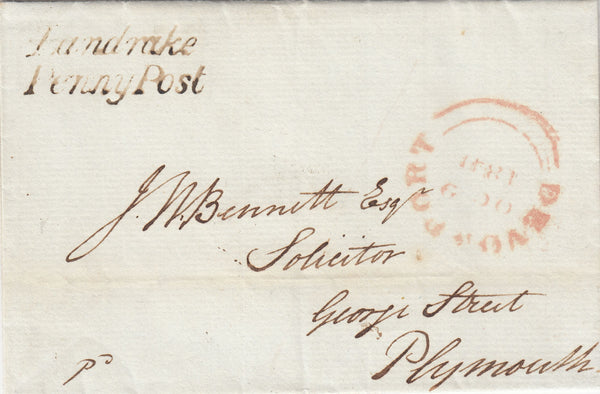 Landrake
Penny Post
DEVONPORT
OC 6
1841
J. W. Bennett Esqr
Solicitor
George Street
Plymouth
pd